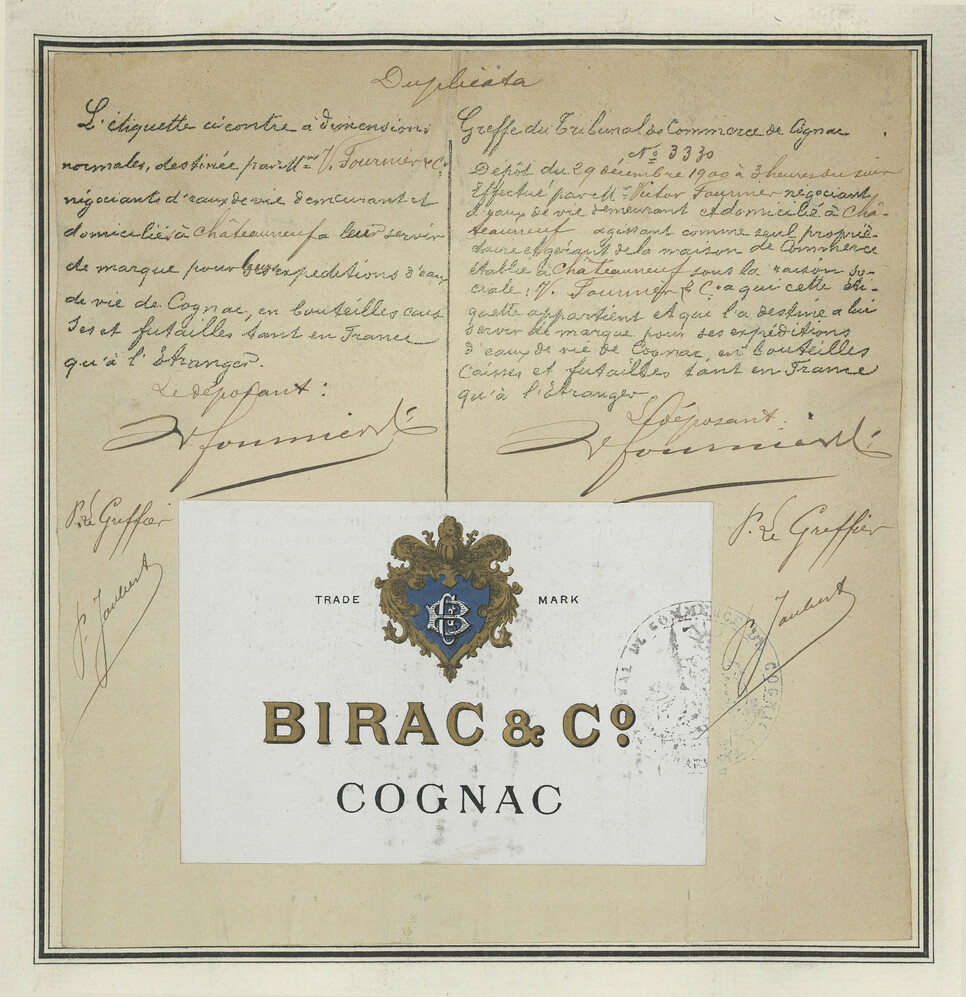 Duplicata
L'étiquette ci contre à dimensions
normales, destinée par M. V. Fournier & Cie
négociants d'eaux de vie demeurant et
domiciliés à Châteauneuf a leur servir
de marque pour leurs expéditions d'eaux
de vie de Cognac, en bouteilles cais
ses et futailles tant en France
qu'à l'Etranger.
Le déposant :
V. Fournier & Cie
P. Le Greffier
P. Jaubert
Greffe du Tribunal de Commerce de Cognac
No 3330
Dépôt du 29 décembre 1900 à 3 heures du soir
Effectué par Mr Victor Fournier négociant
d'eaux de vie demeurant et domicilié à Châ-
teauneuf agissant comme seul proprié-
taire et gérant de la maison de Commerce
établie à Châteauneuf sous la raison so-
ciale : V. Fournier & Cie a qui cette éti-
quette appartient et qui l'a destiné a lui
servir de marque pour ses expéditions
d'eaux de vie de Cognac, en bouteilles
Caisses et futailles tant en France
qu'à l'Etranger
Le déposant
V. Fournier & Cie
P. Le Greffier
P. Jaubert
TRADE MARK
BC
BIRAC & Co
COGNAC
DE COMMERCE DE COGNAC